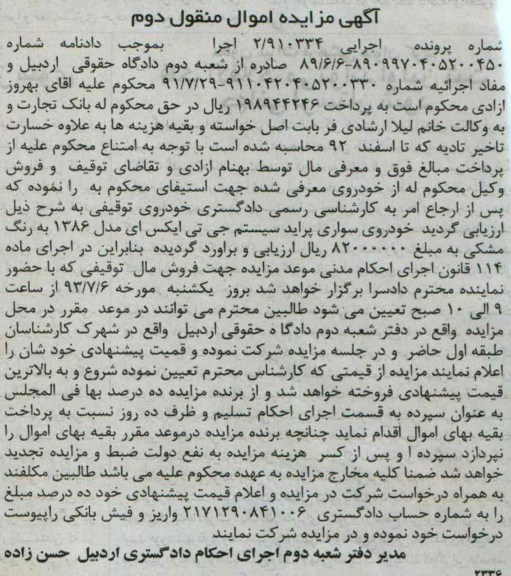 آگهی مزایده اموال منقول دوم
شماره پرونده اجرایی ۲/۹۱۰۳۳۴ اجرا بموجب دادنامه شماره
۸۹۰۹۹۷۰۴۰۵۲۰۰۴۵۰-۸۹/۶/۶ صادره از شعبه دوم دادگاه حقوقی اردبیل و
مفاد اجرائیه شماره ۹۱۱۰۴۲۰۴۰۵۲۰۰۳۳۰-۹۱/۷/۲۹ محکوم علیه اقای بهروز
ازادی محکوم است به پرداخت ۱۹۸۹۴۴۲۴۶ ریال در حق محکوم له بانک تجارت و
به وکالت خانم لیلا ارشادی فر بابت اصل خواسته و بقیه هزینه ها به علاوه خسارت
تاخیر تادیه که تا اسفند ۹۲ محاسبه شده است با توجه به امتناع محکوم علیه از
پرداخت مبالغ فوق و معرفی مال توسط بهنام ازادی و تقاضای توقیف و فروش
وکیل محکوم له از خودروی معرفی شده جهت استیفای محکوم به را نموده که
پس از ارجاع امر به کارشناسی رسمی دادگستری خودروی توقیفی به شرح ذیل
ارزیابی گردید خودروی سواری پراید سیستم جی تی ایکس ای مدل ۱۳۸۶ به رنگ
مشکی به مبلغ ۸۲۰۰۰۰۰۰ ریال ارزیابی و براورد گردیده بنابراین در اجرای ماده
۱۱۴ قانون اجرای احکام مدنی موعد مزایده جهت فروش مال توقیفی که با حضور
نماینده محترم دادسرا برگزار خواهد شد بروز یکشنبه مورخه ۹۳/۷/۶ از ساعت
۹ الی ۱۰ صبح تعیین می شود طالبین محترم می توانند در موعد مقرر در محل
مزایده واقع در دفتر شعبه دوم دادگا ه حقوقی اردبیل واقع در شهرک کارشناسان
طبقه اول حاضر و در جلسه مزایده شرکت نموده و قمیت پیشنهادی خود شان را
اعلام نمایند مزایده از قیمتی که کارشناس محترم تعیین نموده شروع و به بالاترین
قیمت پیشنهادی فروخته خواهد شد و از برنده مزایده ده درصد بها فی المجلس
به عنوان سپرده به قسمت اجرای احکام تسلیم و ظرف ده روز نسبت به پرداخت
بقیه بهای اموال اقدام نماید چنانچه برنده مزایده درموعد مقرر بقیه بهای اموال را
نپردازد سپرده ا و پس از کسر هزینه مزایده به نفع دولت ضبط و مزایده تجدید
خواهد شد ضمنا کلیه مخارج مزایده به عهده محکوم علیه می باشد طالبین مکلفند
به همراه درخواست شرکت در مزایده و اعلام قیمت پیشنهادی خود ده درصد مبلغ
را به شماره حساب دادگستری ۲۱۷۱۲۹۰۸۴۱۰۰۶ واریز و فیش بانکی راپیوست
درخواست خود نموده و در مزایده شرکت نمایند
مدیر دفتر شعبه دوم اجرای احکام دادگستری اردبیل حسن زاده
۲۳۳۶